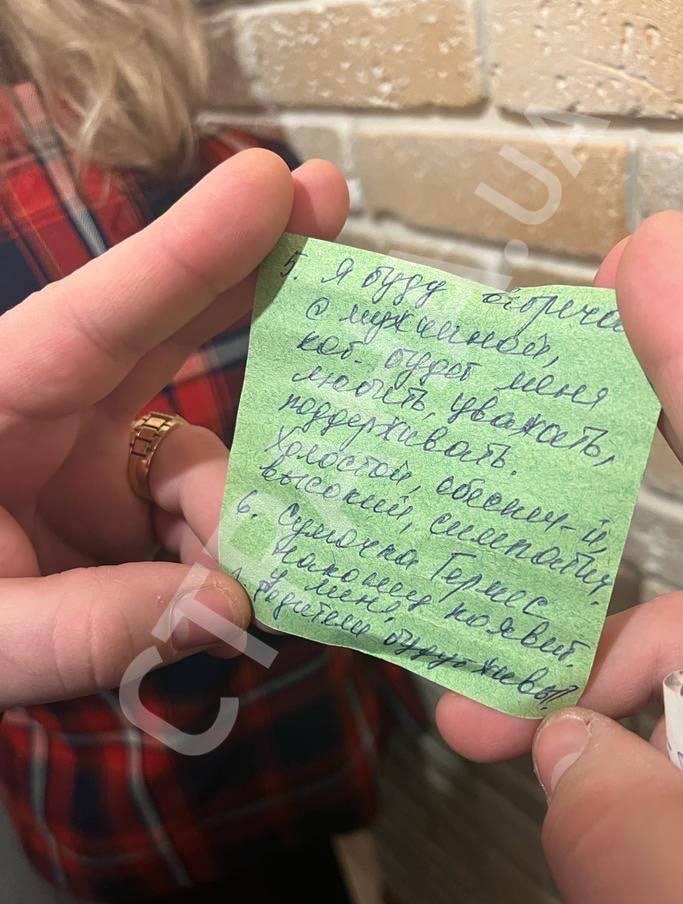 5. Я буду встреча
с мужчиной,
кот. будет меня
любить, уважать,
поддерживать.
Холостой, обеспеч-й,
высокий, симпатич.
6. Сумочка Гермес
наконец появит.
у меня.
родители будут живы!
СТРАНА.UA